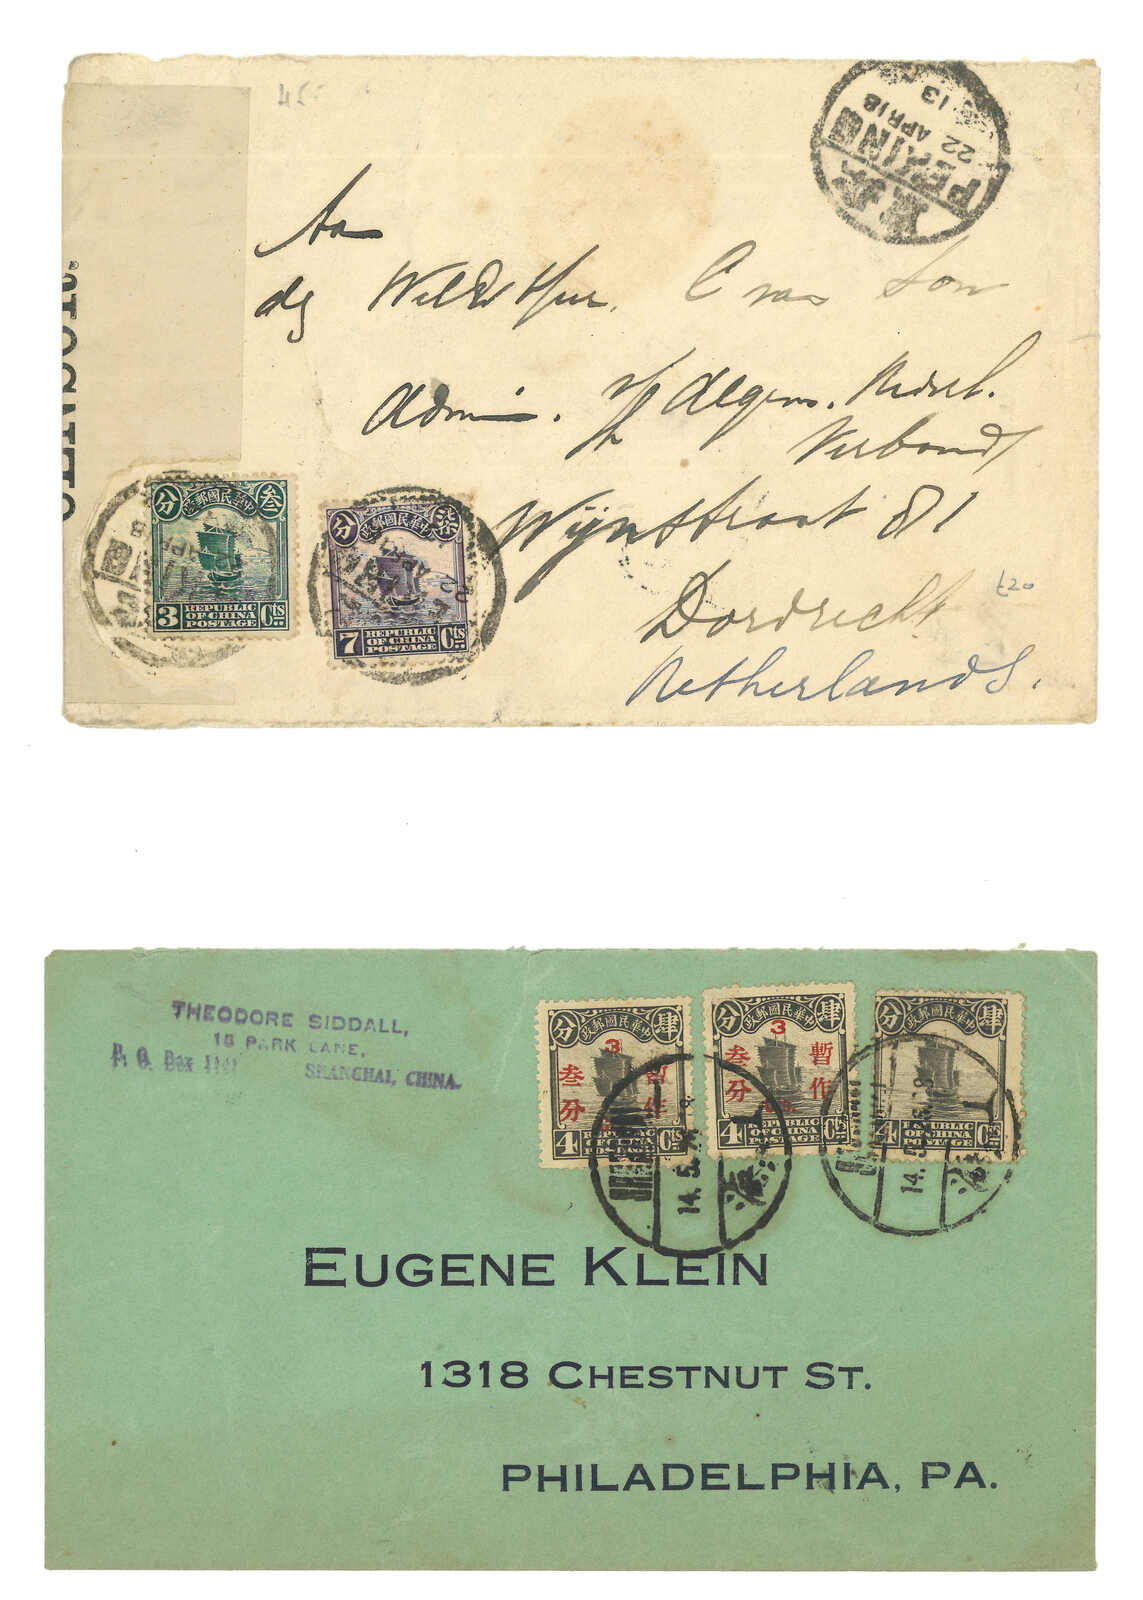 45
北京
PEKING
22 APR 18
13
Aan
dg WelEd Heer. C van Son
Admin. v/h Algem. Nederl.
Verbond
Wijnstraat 81
Dordrecht
Netherlands.
£20
中華民國郵政
分 叁
3 Cts
REPUBLIC
OF CHINA
POSTAGE
中華民國郵政
分 柒
7 Cts
REPUBLIC
OF CHINA
POSTAGE
THEODORE SIDDALL,
15 PARK LANE,
P. O. Box
SHANGHAI, CHINA.
中華民國郵政
分 肆
3
暫作
叁分
4 Cts
REPUBLIC
OF CHINA
POSTAGE
中華民國郵政
分 肆
3
暫作
叁分
4 Cts
REPUBLIC
OF CHINA
POSTAGE
中華民國郵政
分 肆
4 Cts
REPUBLIC
OF CHINA
POSTAGE
SHANGHAI
14.5.
上海
SHANGHAI
14.5.
上海
EUGENE KLEIN
1318 CHESTNUT ST.
PHILADELPHIA, PA.